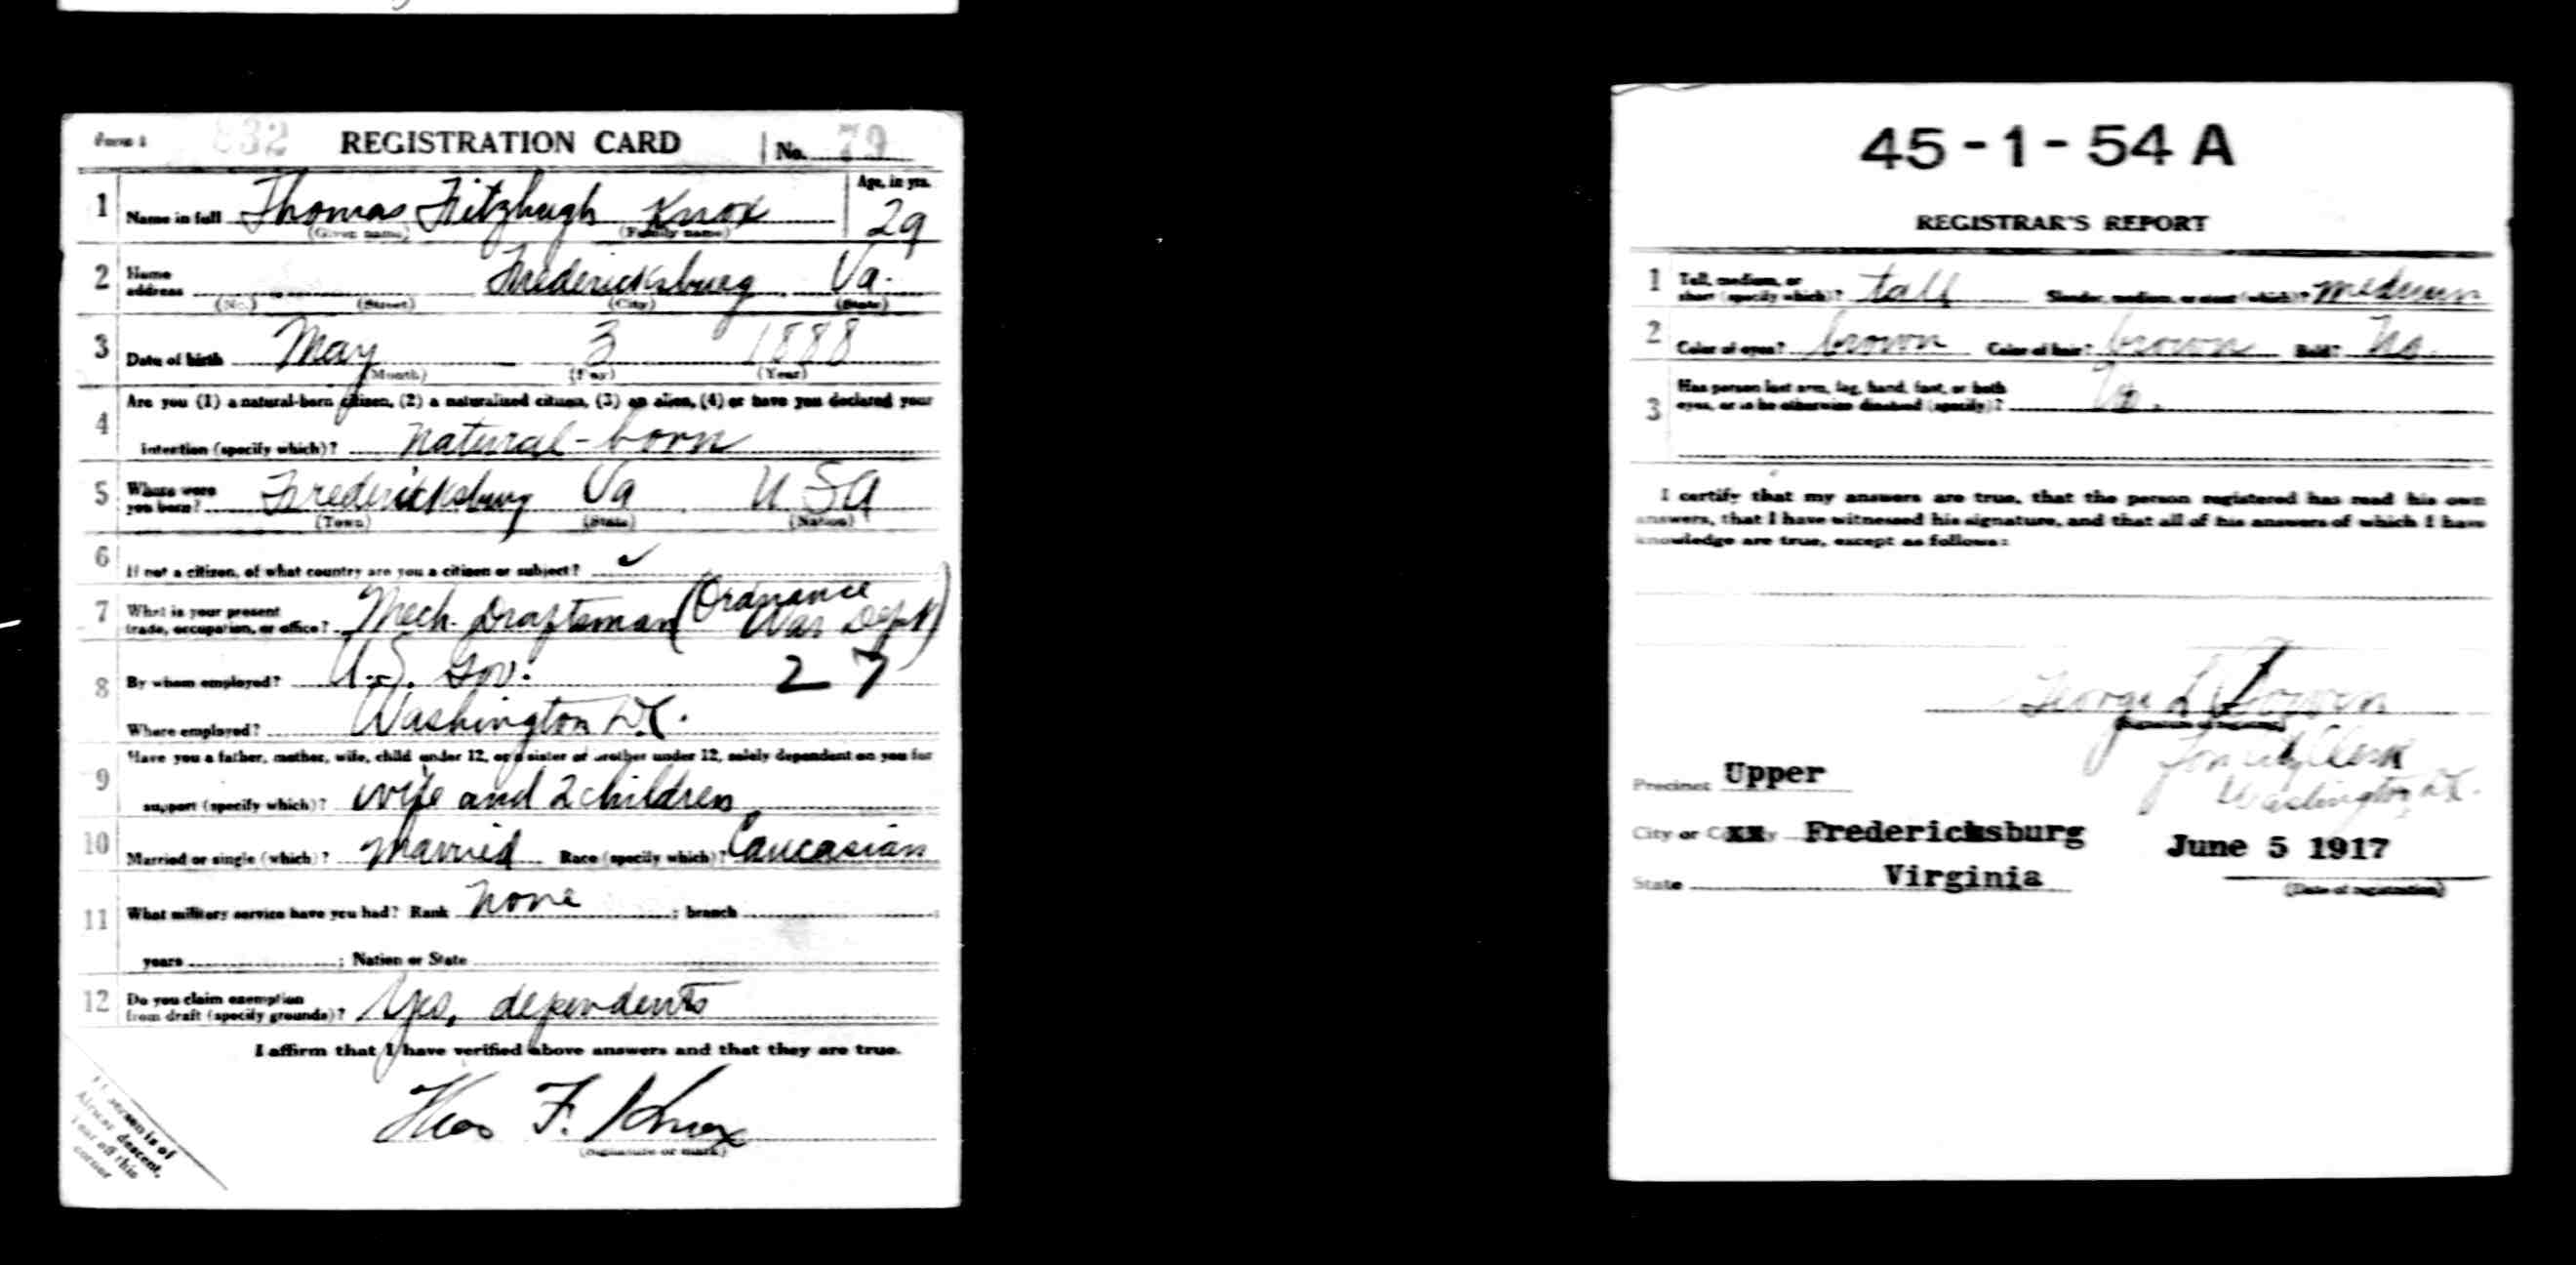 Form 1 832 REGISTRATION CARD No. 79
1 Name in full Thomas Fitzhugh Knox Age, in yrs. 29
(Given name) (Family name)
2 Home address Fredericksburg Va.
(No.) (Street) (City) (State)
3 Date of birth May 3 1888
(Month) (Day) (Year)
4 Are you (1) a natural-born citizen, (2) a naturalized citizen, (3) an alien, (4) or have you declared your
intention (specify which)? natural-born
5 Where were you born? Fredericksburg Va U SA
(Town) (State) (Nation)
6 If not a citizen, of what country are you a citizen or subject?
7 What is your present trade, occupation, or office? Mech. Draftsman (Ordnance War Dept)
8 By whom employed? U.S. Gov. 27
Where employed? Washington D.C.
9 Have you a father, mother, wife, child under 12, or a sister or brother under 12, solely dependent on you for
support (specify which)? wife and 2 children
10 Married or single (which)? Married Race (specify which)? Caucasian
11 What military service have you had? Rank none ; branch ;
years ; Nation or State
12 Do you claim exemption from draft (specify grounds)? Yes, dependents
I affirm that I have verified above answers and that they are true.
Thos F. Knox
(Signature or mark)
If person is of
African descent,
tear off this
corner
45-1-54 A
REGISTRAR'S REPORT
1 Tall, medium, or short (specify which)? tall Slender, medium, or stout (which)? medium
2 Color of eyes? brown Color of hair? brown Bald? No.
3 Has person lost arm, leg, hand, foot, or both
eyes, or is he otherwise disabled (specify)? No.
I certify that my answers are true, that the person registered has read his own
answers, that I have witnessed his signature, and that all of his answers of which I have
knowledge are true, except as follows:
George
(Signature of registrar)
Clerk
Precinct Upper
Washington D.C.
City or County Fredericksburg
June 5 1917
State Virginia
(Date of registration)